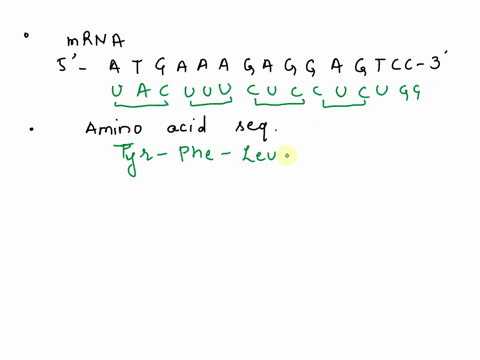 • mRNA
5'- A T G A A A G A G G A G T C C - 3'
U A C U U U C U C C U C U G G
• Amino acid seq.
Tyr - Phe - Leu